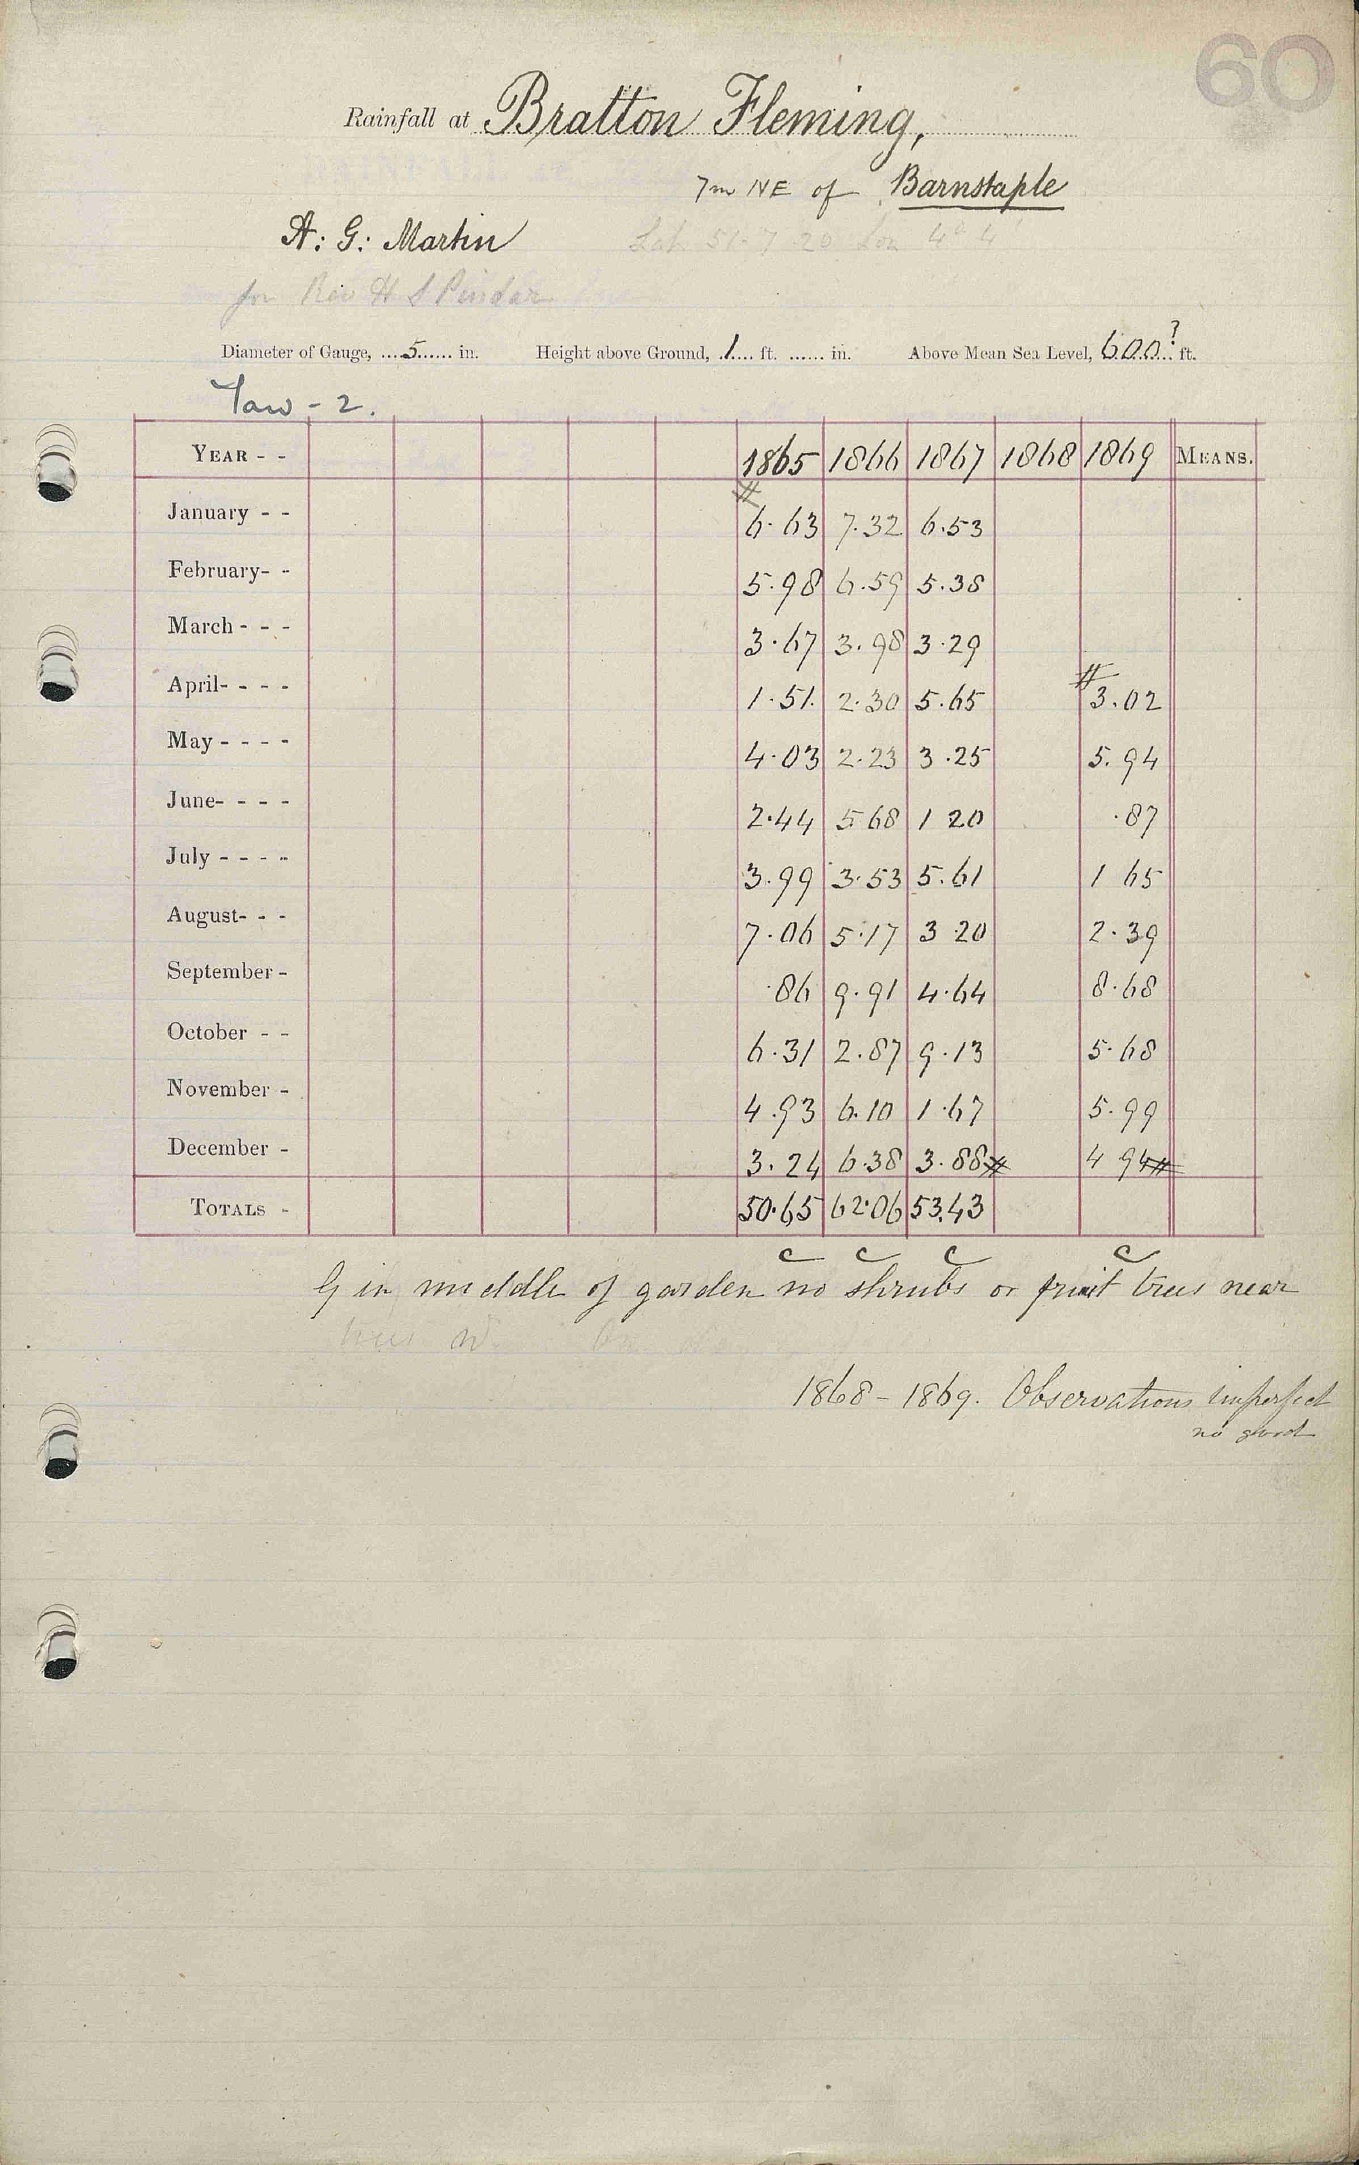 60
Rainfall at Bratton Fleming,
7m NE of Barnstaple
A: G: Martin Lat 51. 7 20 Lon 4° 4'
for Rev H S Pindar
Diameter of Gauge, ....5...... in. Height above Ground, .1.... ft. ...... in. Above Mean Sea Level, 600? ft.
Taw - 2.
YEAR - - 1865 1866 1867 1868 1869 MEANS.
January - - # 6.63 7.32 6.53
February- - 5.98 6.59 5.38
March - - - 3.67 3.98 3.29
April- - - - 1.51. 2.30 5.65 # 3.02
May - - - - 4.03 2.23 3.25 5.94
June- - - - 2.44 5 68 1 20 .87
July - - - - 3.99 3.53 5.61 1 65
August- - - 7.06 5.17 3 20 2.39
September - .86 9.91 4.64 8.68
October - - 6.31 2.87 9.13 5.68
November - 4.93 6.10 1.67 5.99
December - 3.24 6.38 3.88# 4 94#
TOTALS - 50.65 62.06 53.43
c c c c
G in middle of garden no shrubs or fruit trees near
trees
1868 - 1869. Observations imperfect
no good